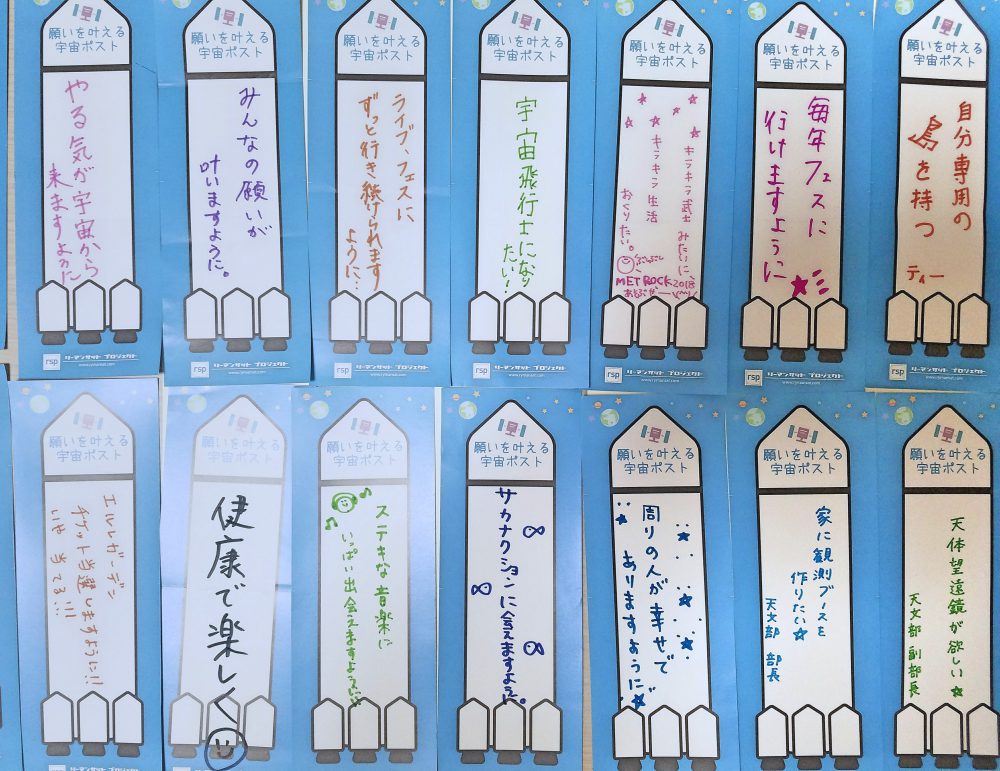 願いを叶える
宇宙ポスト
やる気が宇宙から
来ますように
rsp リーマンサット プロジェクト
www.rymansat.com
願いを叶える
宇宙ポスト
みんなの願いが
叶いますように。
rsp リーマンサット プロジェクト
www.rymansat.com
願いを叶える
宇宙ポスト
ライブ、フェスに
ずっと行き続けられます
ように…
rsp リーマンサット プロジェクト
www.rymansat.com
願いを叶える
宇宙ポスト
宇宙飛行士になり
たい!
rsp リーマンサット プロジェクト
www.rymansat.com
願いを叶える
宇宙ポスト
キラキラ武士みたいに、
キラキラ生活
おくりたい。
METROCK2018
rsp リーマンサット プロジェクト
www.rymansat.com
願いを叶える
宇宙ポスト
毎年フェスに
行けますように
rsp リーマンサット プロジェクト
www.rymansat.com
願いを叶える
宇宙ポスト
自分専用の
島を持つ
ティー
rsp リーマンサット プロジェクト
www.rymansat.com
願いを叶える
宇宙ポスト
エルレガーデン
チケット当選しますように!!!
いや 当てる!!!
rsp
願いを叶える
宇宙ポスト
健康で楽しく
願いを叶える
宇宙ポスト
ステキな音楽に
いっぱい出会えますように
願いを叶える
宇宙ポスト
サカナクションに会えますように。
願いを叶える
宇宙ポスト
周りの人が幸せで
ありますように
願いを叶える
宇宙ポスト
家に観測ブースを
作りたい☆
天文部 部長
願いを叶える
宇宙ポスト
天体望遠鏡が欲しい☆
天文部 副部長